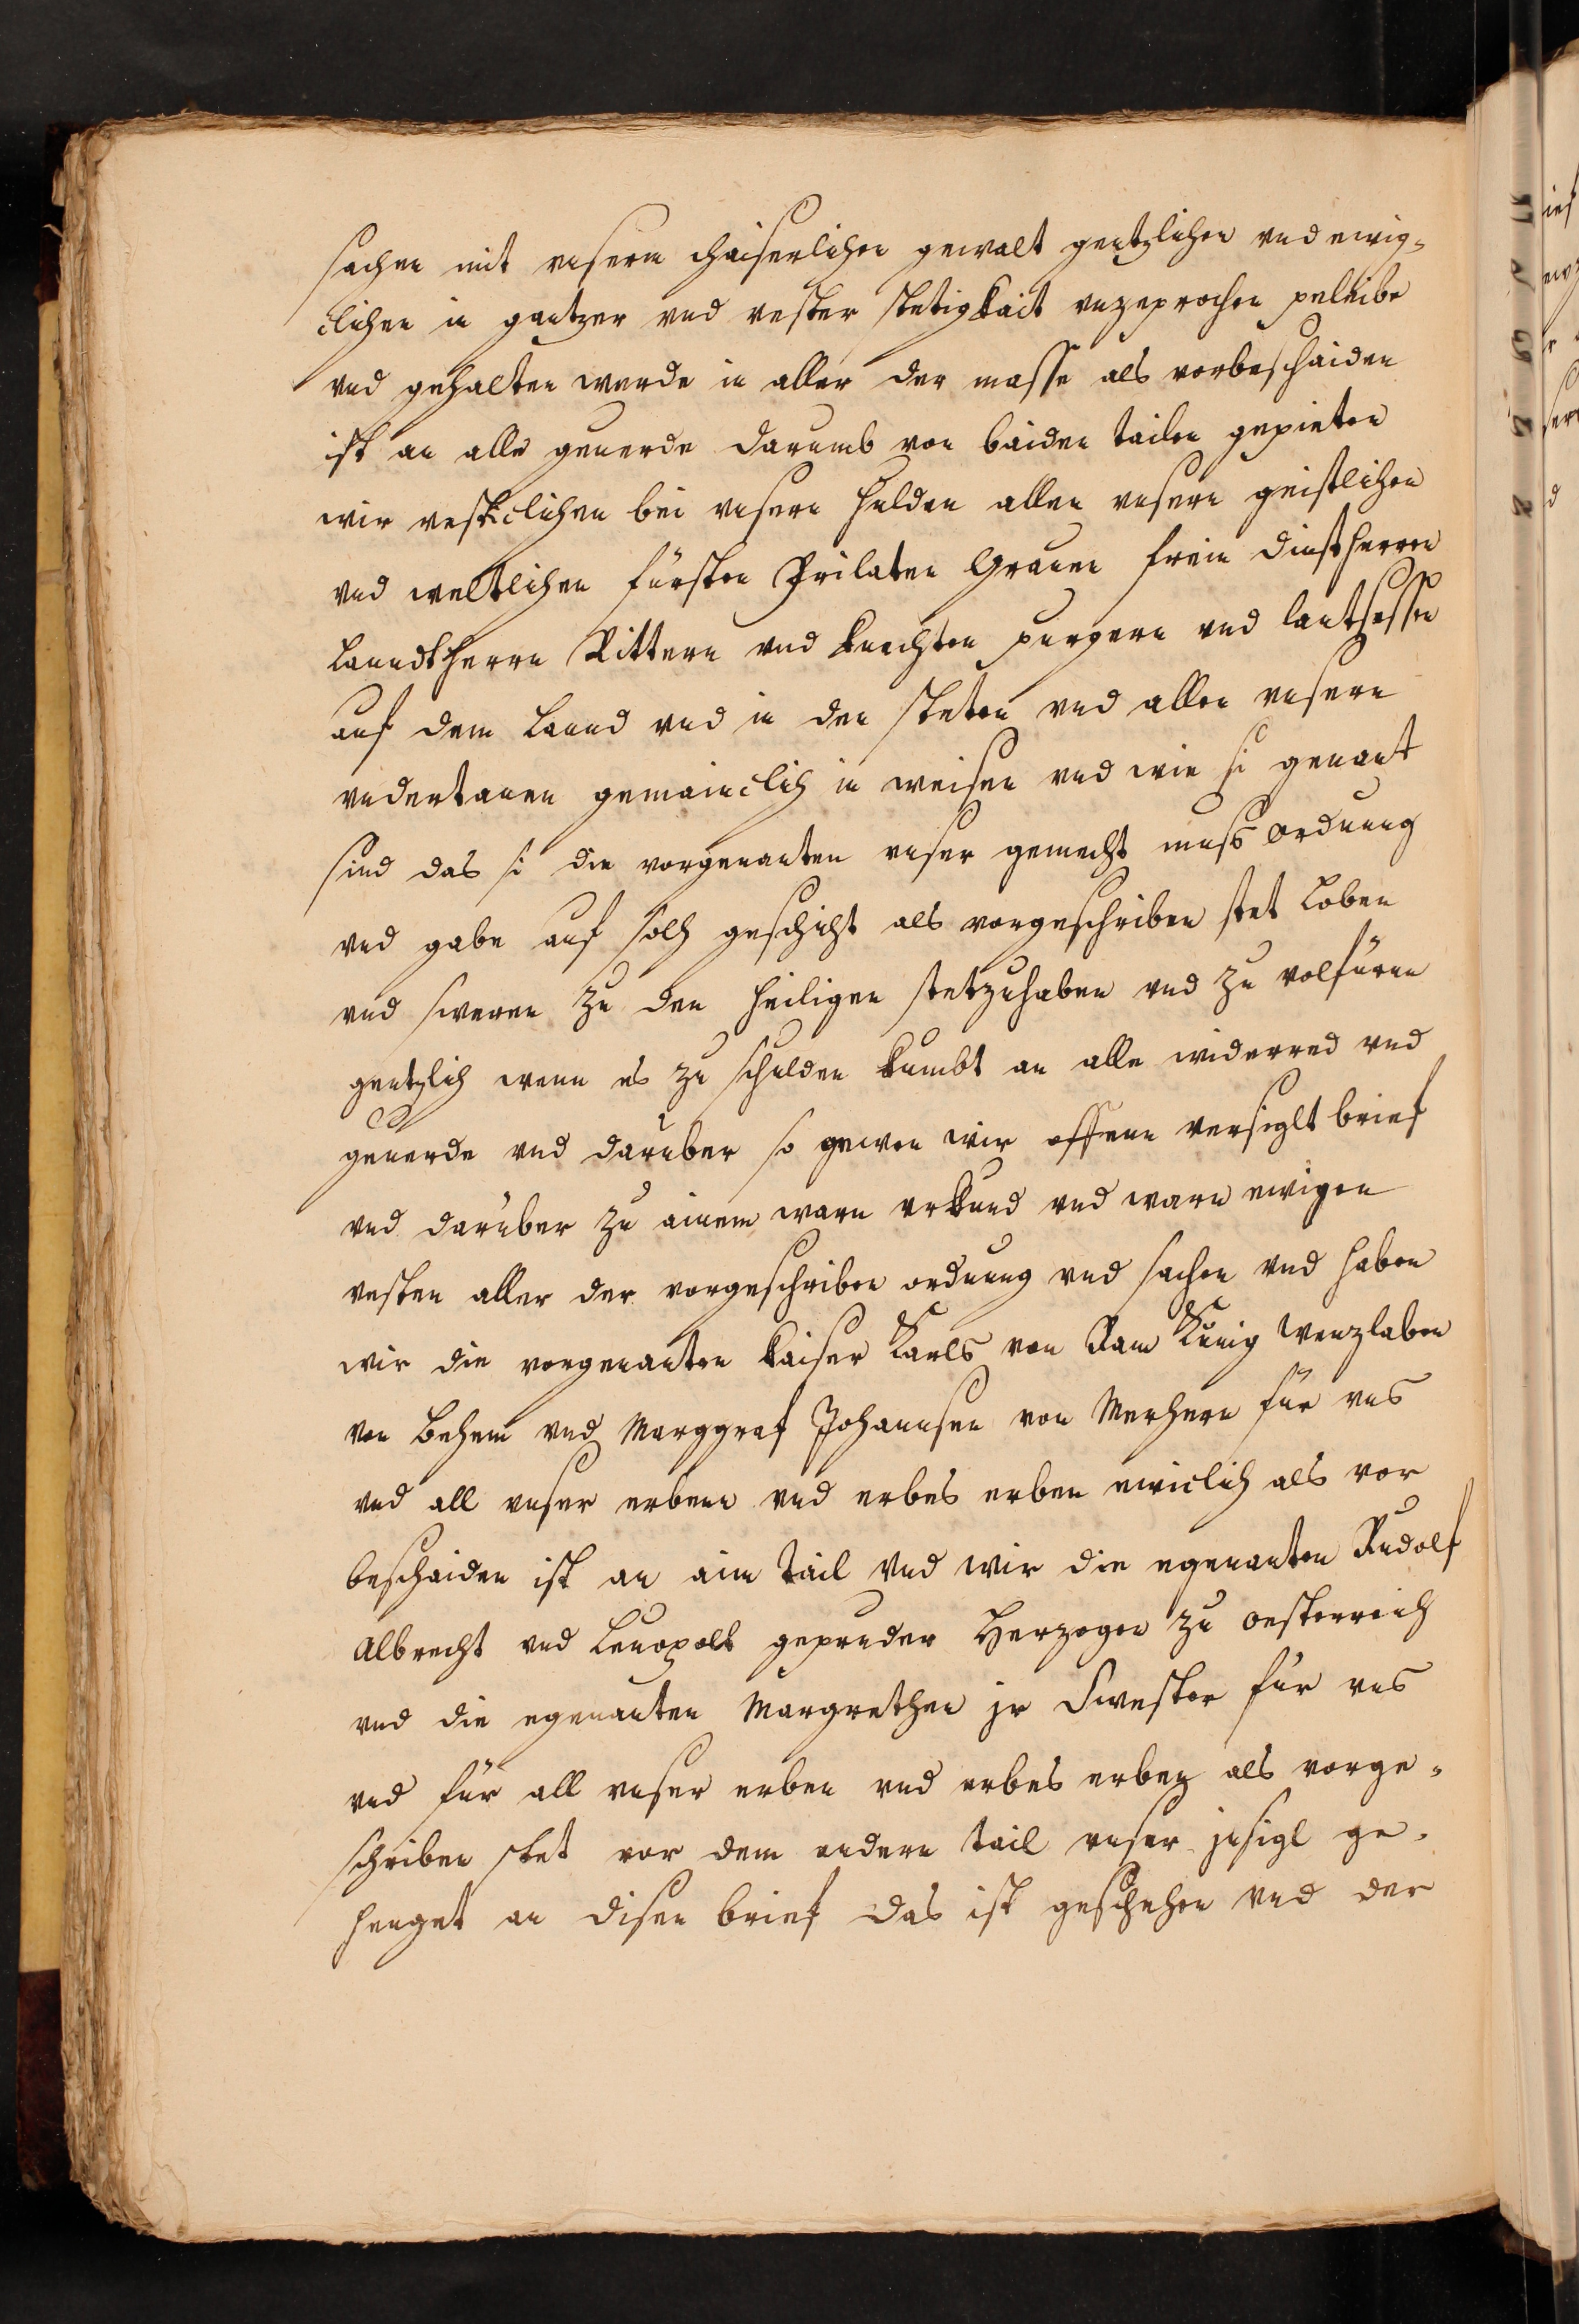 sachen mit vnsern chaiserlichen gewalt gentzlichen vnd ewig-
clichen in gantzer vnd vester stetigkait vnzeprochen peleibe
vnd gehalten werde in aller der masse als vorbeschaiden
ist an alle geuerde darumb von baiden tailen gepieten
wir vesticlichen bei vnsern hulden allen vnsern geistlichen
vnd weltlichen fürsten Prilaten Grauen frein dinstherren
Lanndtherrn Rittern vnd knechten purgern vnd lantsessen
auf dem Lannd vnd in den steten vnd allen vnsern
vndertanen gemainclich in weisen vnd wie si genant
sind das si die vorgenanten vnser gemecht muss ordnung
vnd gabe auf solh geschicht als vorgeschriben stet Loben
vnd sweren zu den heiligen stetzuhaben vnd zu volfürn
gentzlich wenn es zu schulden kumbt an alle widerred vnd
geuerde vnd daruber so gewen wir offenn versiglt brief
vnd daruber zu ainem warn vrkund vnd warn ewigen
vesten aller der vorgeschriben ordnung vnd sachen vnd haben
wir die vorgenanten kaiser Karls von Ram Künig Wenzlaben
von Behem vnd Marggraf Johannsen von Merhern für vns
vnd all vnser erbenn vnd erbes erben ewiclich als vor
beschaiden ist an aim tail vnd wir die egenanten Rudolf
Albrecht vnd Leuopolt gepruder Herzogen zu Oesterreich
vnd die egenanten Margrethen jr Swester für vns
vnd für all vnser erben vnd erbes erben als vorge-
schriben stet vor dem andern tail vnser jnsigl ge-
henget an disen brief das ist geschehen vnd der